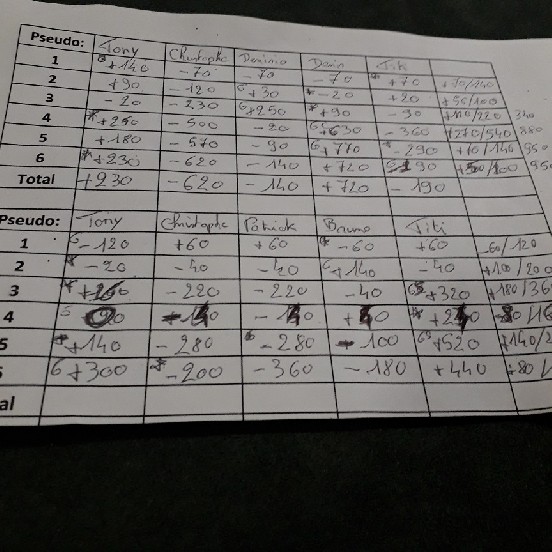 Pseudo: Tony Christophe Denis
1 +140 -70 -70 -70 * +70 +70/140
2 +90 -120 G+30 *-20 +20 +50/100
3 -20 -230 G+250 *+90 -90 +110/220
4 *+250 -500 -20 G+630 -360 +270/540
5 +180 -570 -90 G+770 *-290 +70/140
6 *+230 -620 -140 +720 +50/100
Total +230 -620 -140 +720 -190
Pseudo: Tony Christophe Patrick Bruno Titi
1 G-120 +60 +60 *-60 +60 -60/120
2 *-20 -40 -40 G+140 -40 +100/200
3 -220 -220 -40 +320 +180/36
4
5 *+140 -280 G-280 -100 +520 +140/2
G+300 *-200 -360 -180 +440 +80/
al